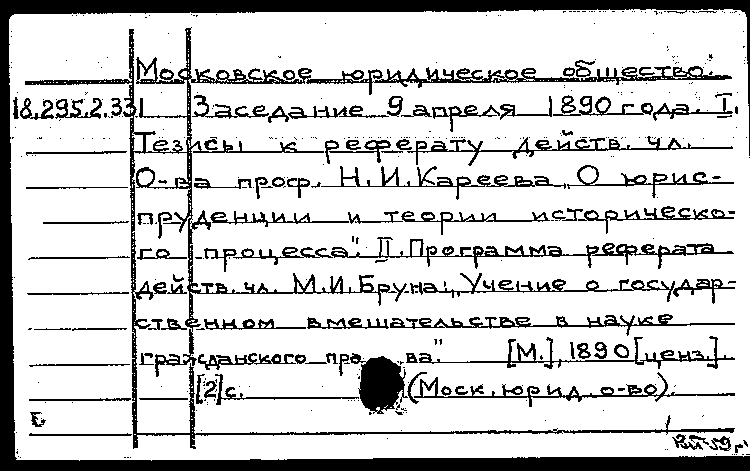 Московское юридическое общество.
18.295.2.331 Заседание 9 апреля 1890 года. I.
Тезисы к реферату действ. чл.
О-ва проф. Н.И.Кареева „О юрис-
пруденции и теории историческо-
го процесса". II. Программа реферата
действ. чл. М.И.Бруна: „Учение о государ-
ственном вмешательстве в науке
гражданского права." [М.], 1890 [ценз.].
[2]с. (Моск. юрид. о-во).